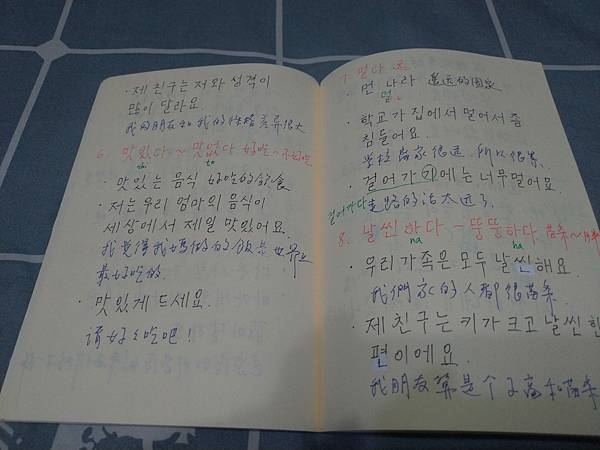 · 제 친구는 저와 성격이
많이 달라요.
我的朋友和我的性格差异很大
6. 맛있다 ~ 맛없다 好吃~不好吃
맛있는 음식 好吃的飲食
· 저는 우리 엄마의 음식이
세상에서 제일 맛있어요.
我觉得我媽媽的飯是世界上
最好吃的.
· 맛있게 드세요.
请好好吃吧!
7. 멀다 远
· 먼 나라 遥远的国家
멀
· 학교가 집에서 멀어서 좀
힘들어요.
学校离家很远, 所以很累.
· 걸어가기에는 너무 멀어요.
걸어가다 走路的话太远了
8. 날씬하다 ~ 뚱뚱하다 苗条~
na
ha
· 우리 가족은 모두 날씬해요
我們家的人都很苗条.
· 제 친구는 키가 크고 날씬한
편이에요.
我朋友算是个子高和苗条